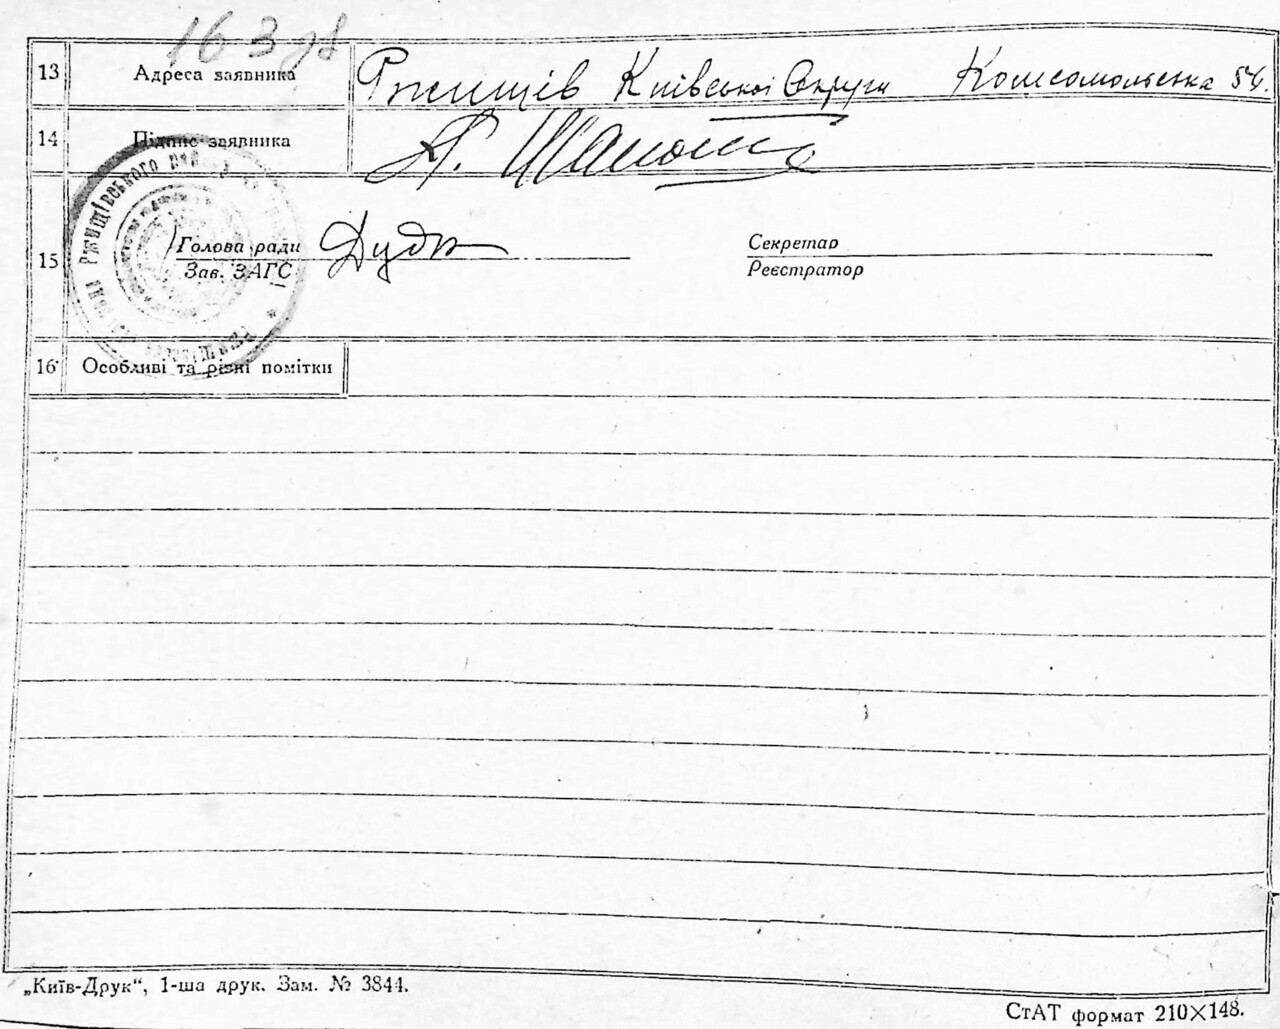 163
13 Адреса заявника Ржищів Київської Округи Комсомольська 54.
14 Підпис заявника А.
Ржищівського
15 Голова ради Дудк Секретар
Зав. ЗАГС Реєстратор
16 Особливі та різні помітки
„Київ-Друк“, 1-ша друк. Зам. № 3844.
СтАТ формат 210×148.